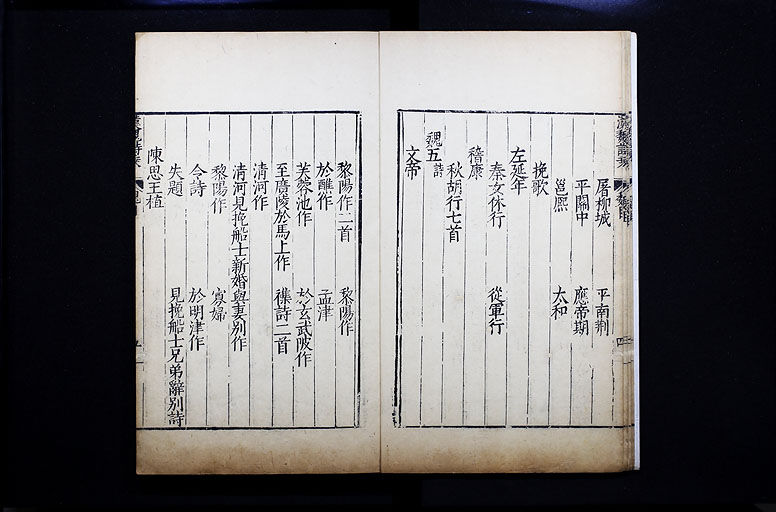 屠柳城　平南荆
平關中　應帝期
邕熙　太和
挽歌
左延年
秦女休行　從軍行
嵇康
秋胡行七首
魏五詩
文帝
黎陽作二首　黎陽作
於譙作　孟津
芙蓉池作　於玄武陂作
至廣陵於馬上作　襍詩二首
清河作
清河見挽船士新婚與妻别作
黎陽作　寡婦
令詩　於明津作
失題　見挽船士兄弟辭别詩
陳思王植